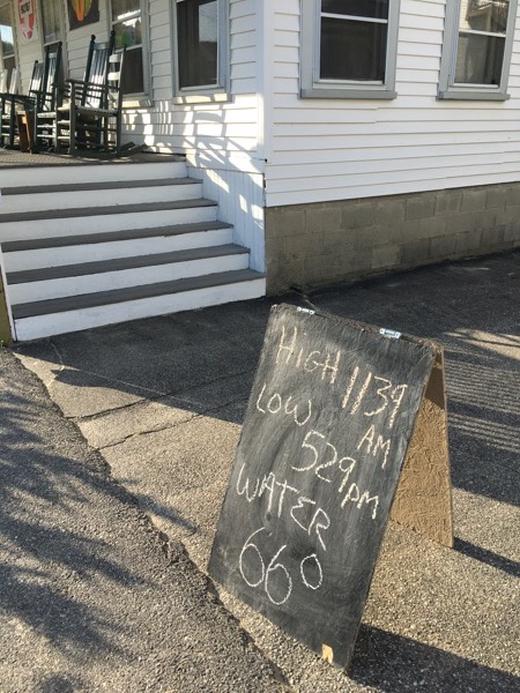 HIGH 1139
AM
LOW
529 PM
WATER
66°